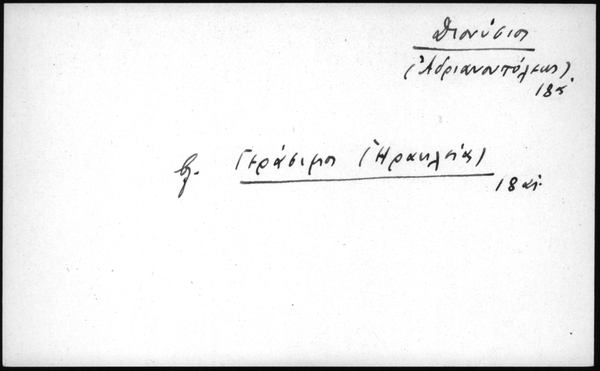 Διονύσιος
(Ἀδριανουπόλεως)
18 αἰ.
βλ. Γεράσιμος (Ἡρακλείας)
18 αἰ.